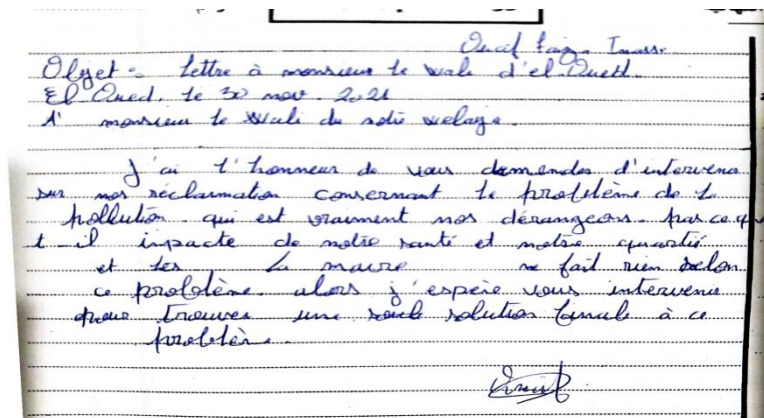 Objet : lettre à monsieur le wali d'el Oued.
El Oued, le 30 nov. 2021
A' monsieur le wali de notre welaya.
J'ai l'honneur de vous demander d'intervenir
sur nos réclamation consernant le problème de la
pollution qui est vraiment nos dérangeons. par ce que
t-il impacte de notre santé et notre quartié
et les la maire ne fait rien selon
ce problème. alors j'espère vous intervenir
pour trouver une seule solution finale à ce
problème.